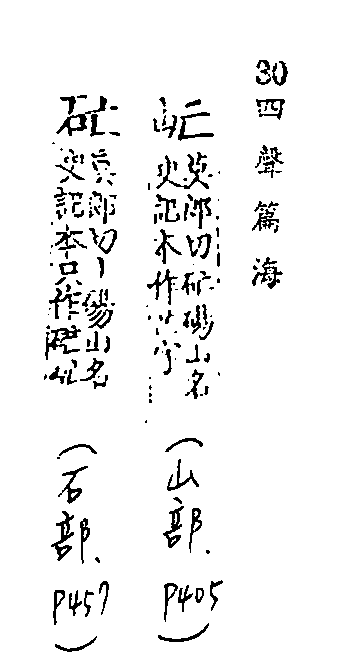 30 四聲篇海
莫郎切碭山名
史記本作芒字
(山部、P405)
莫郎切丨碭山名
史記本只作
(石部、P457)